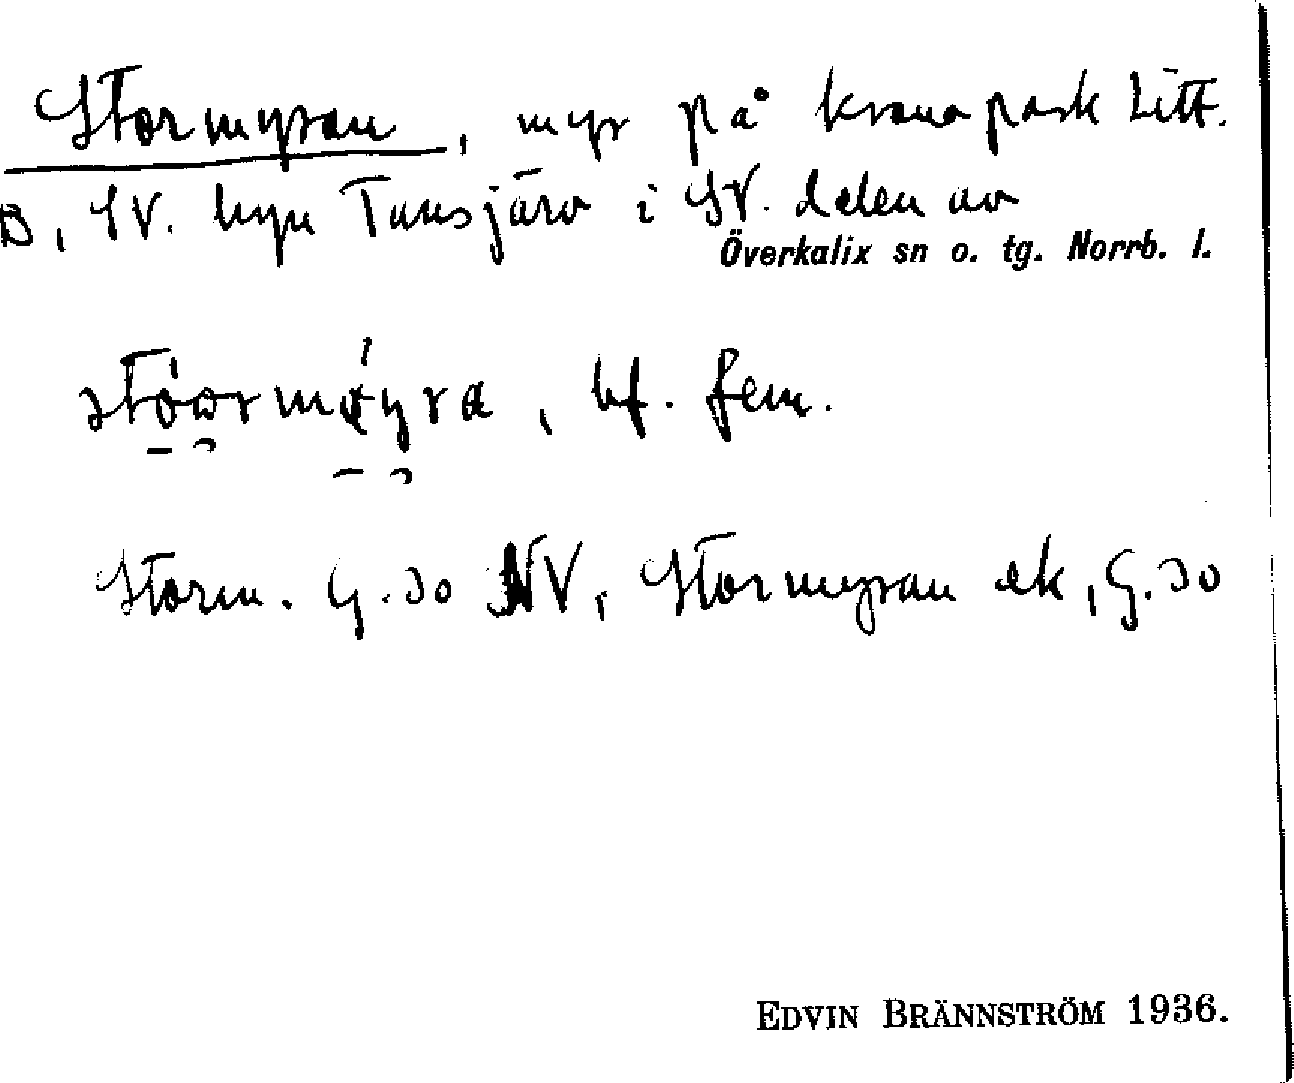 Stormyran, myr på kronopark Litt.
B, SV. byn Tansjärv i SV. delen av
Överkalix sn o. tg. Norrb. l.
bf. fem.
Storm. G. 30 NV, Stormyran ek, G. 30
EDVIN BRÄNNSTRÖM 1936.